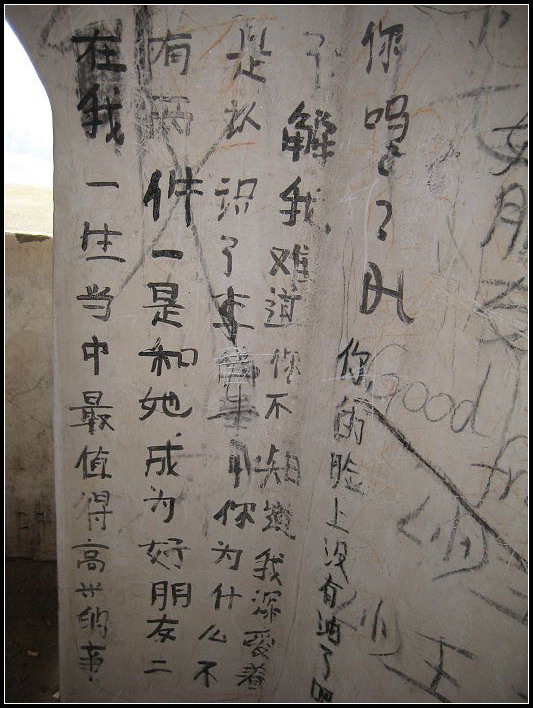 在我一生当中最值得高兴的事
有两件一是和她成为好朋友二
是认识了 你为什么不
了解我难道你不知道我深爱着
你吗？
你的脸上没有油了
女朋友
Good